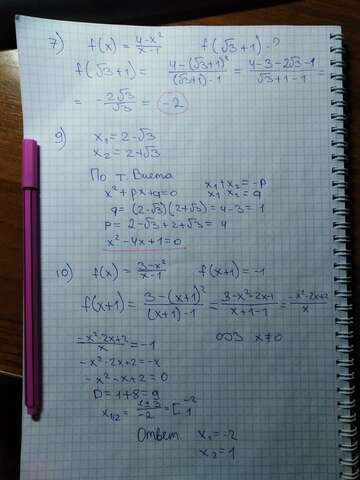 7) f(x) = (4-x²)/(x-1) f(√3+1) - ?
f(√3+1) = (4-(√3+1)²)/((√3+1)-1) = (4-3-2√3-1)/(√3+1-1) =
= -2√3/√3 = -2
9) x₁ = 2-√3
x₂ = 2+√3
По т. Виета
x²+px+q=0 x₁+x₂ = -p
x₁·x₂ = q
q = (2-√3)(2+√3) = 4-3 = 1
p = 2-√3+2+√3 = 4
x²-4x+1=0
10) f(x) = (3-x²)/(x-1) f(x+1) = -1
f(x+1) = (3-(x+1)²)/((x+1)-1) = (3-x²-2x-1)/(x+1-1) = (-x²-2x+2)/x
(-x²-2x+2)/x = -1 ОДЗ x≠0
-x²-2x+2 = -x
-x²-x+2=0
D = 1+8 = 9
x₁/₂ = (1±3)/-2 = [-2 1
Ответ x₁ = -2
x₂ = 1